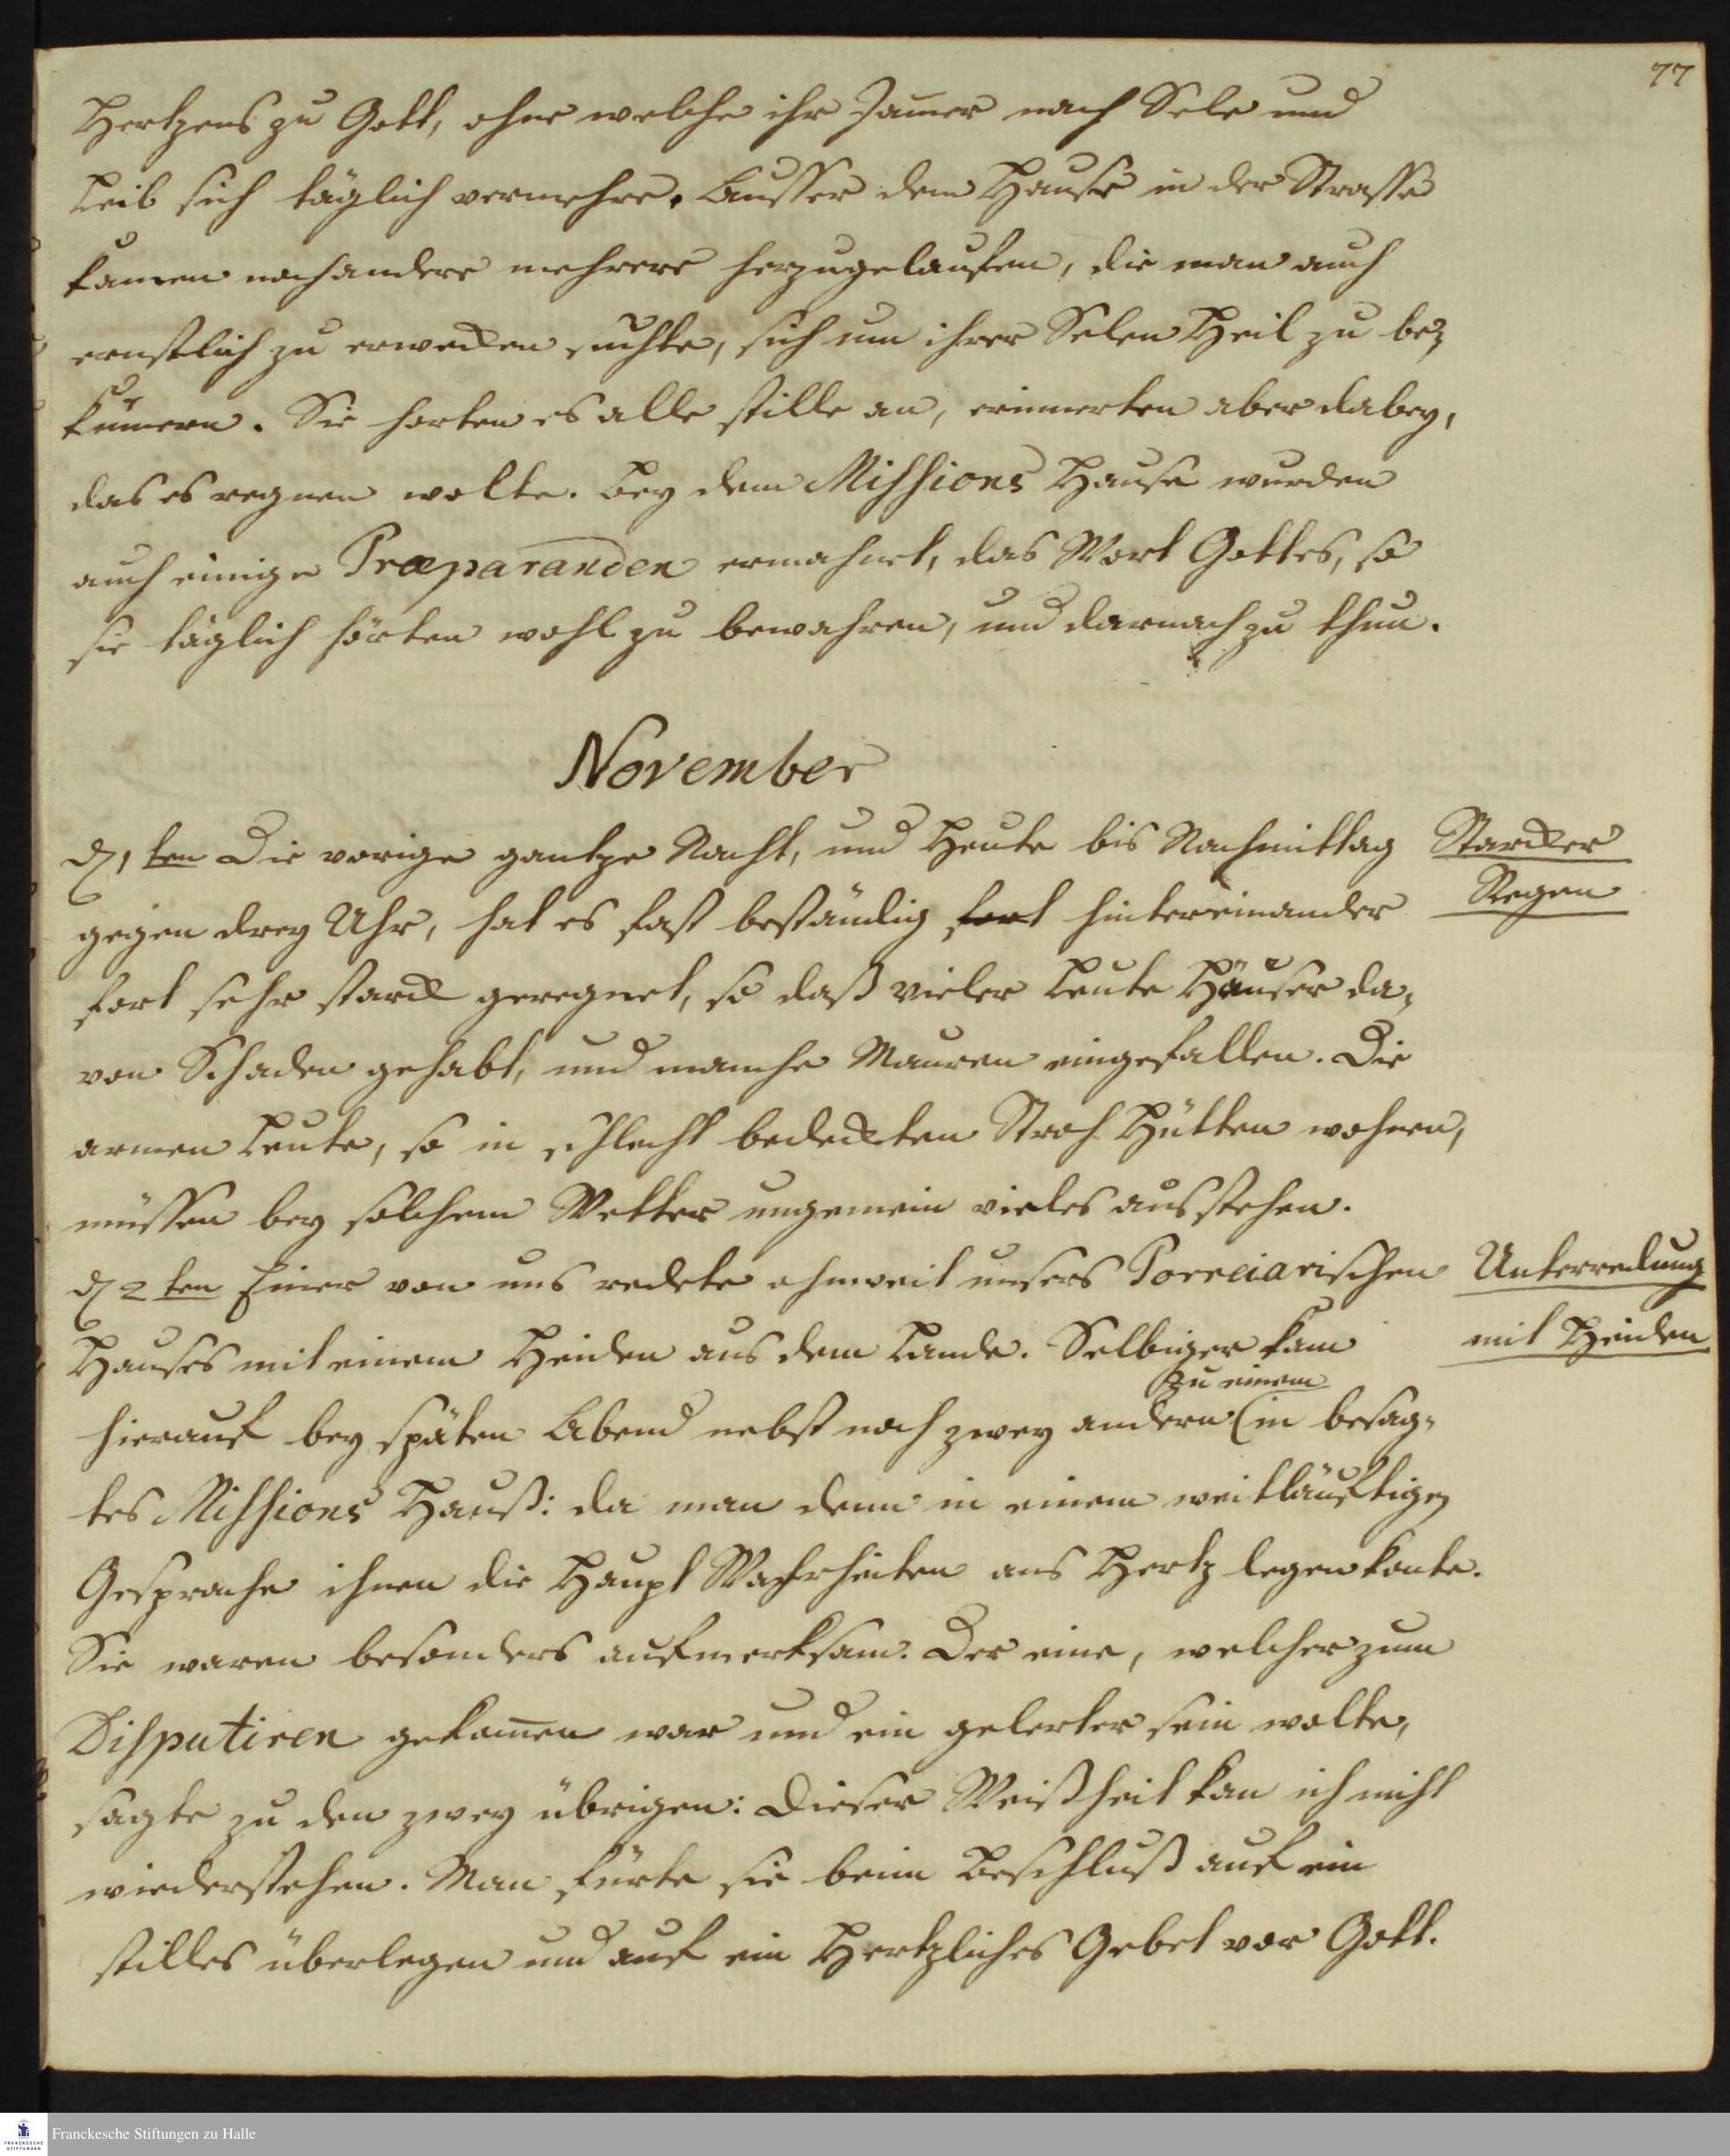 77
Hertzens zu Gott, ohne welche ihr Jam̄er nach Sele und
Leib sich täglich vermehre. Ausser dem Hause in der Strasse
kamen nach andere mehrere herzugelaufen, die man auch
ernstlich zu erwecken suchte, sich um ihrer Selen Heil zu be=
küm̄ern. Sie horten es alle stille an, erinnerten aber dabey,
das es regnen wolte. Bey dem Missions Hause wurden
auch einige Præparanden ermahnet, das Wort Gottes, so
sie täglich hörten wohl zu bewahren, und darnach zu thun.
November
d. 1 ten Die vorige gantze Nacht, und Heute bis Nachmittag
Starcker
gegen drey Uhr, hat es fast beständig fort hintereinander
Regen
fort sehr starck geregnet, so daß vieler Leute Häuser da=
von Schaden gehabt, und manche Mauren eingefallen. Die
armen Leute, so in schlecht bedeckten Stroh Hütten wohnen,
müssen bey solchem Wetter ungemein vieles ausstehen.
d. 2 ten Einer von uns redete ohnweit unsers Porreiarischen
Unterredung
Hauses mit einem Heiden aus dem Lande. Selbiger kam
mit Heiden
zu einem
hierauf bey späten Abend nebst noch zwey andern (in besag=
tes Missions Hauß: da man denn in einem weitläuftigen
Gesprache ihnen die Haupt Wahrheiten ans Hertz legen konte.
Sie waren besonders aufmerksam. Der eine, welcher zum
Disputiren gekom̄en war und ein gelerter sein wolte,
sagte zu den zwey übrigen: Dieser Weißheit kan ich nicht
wiederstehen. Man fürte sie beim Beschluß auf ein
stilles überlegen und auf ein Hertzliches Gebet vor Gott.
Franckesche Stiftungen zu Halle
FRANCKESCHE
STIFTUNGEN